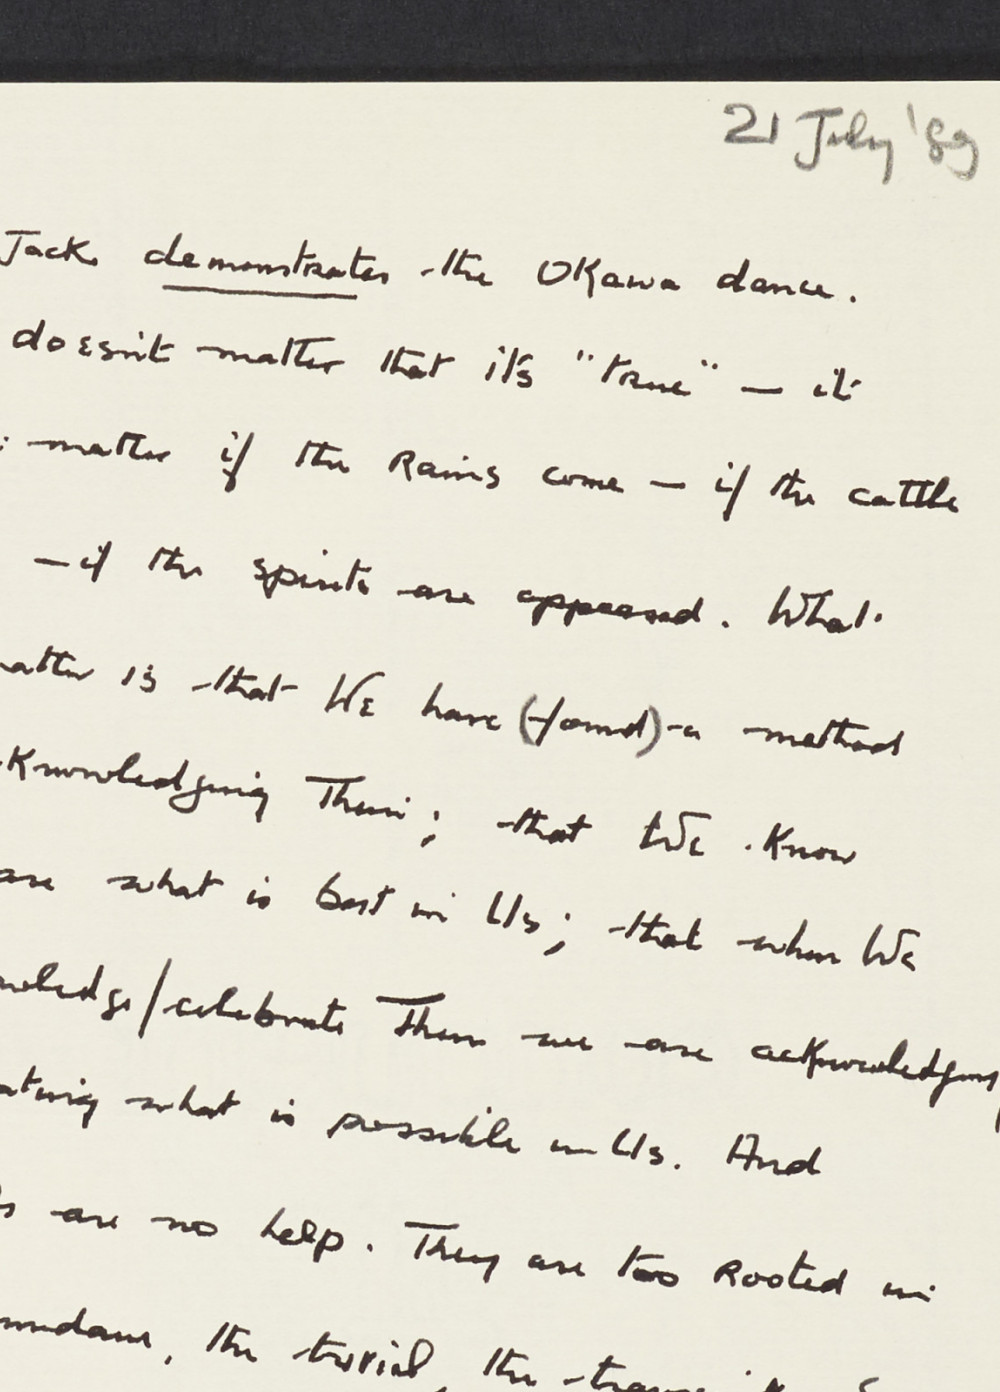 21 July '89
Jack demonstrates the Okawa dance.
doesn't matter that it's "true" — it
matter if the Rains come — if the cattle
— if the spirits are appeased. What
matter is that We have (found) a method
Knowledging Them; that We Know
are what is best in Us; that when We
nowledge/celebrate Them we are acknowledging
ating what is possible in Us. And
are no help. They are too Rooted in
mundane, the trivial, the